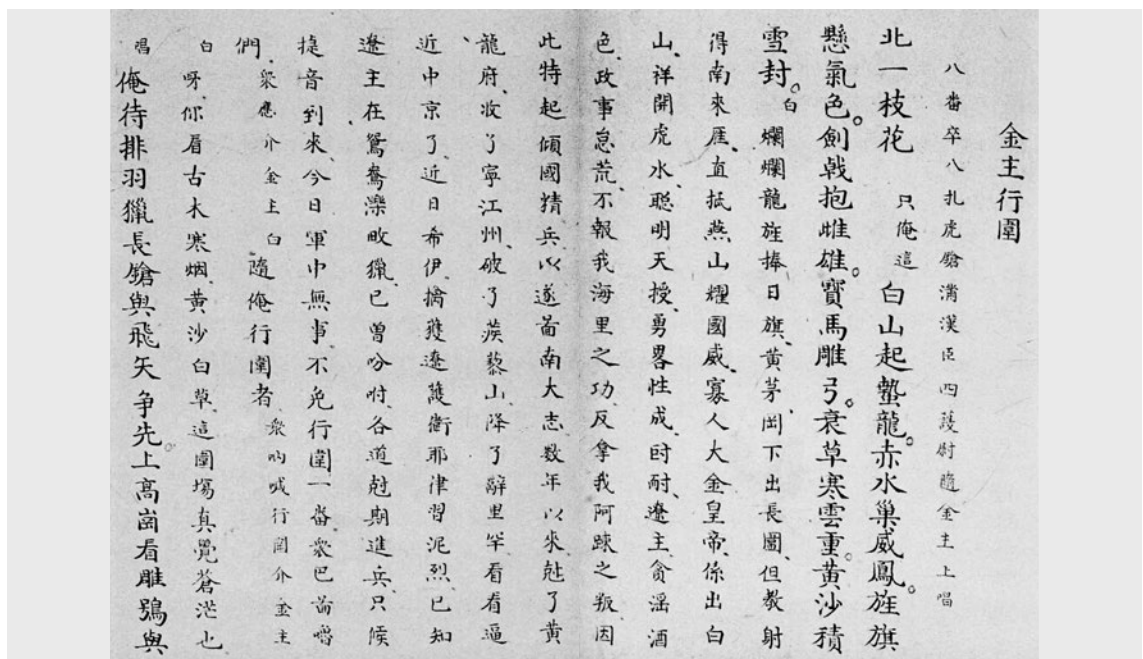 金主行圍
八番卒八扎虎鎗滿漢臣四護尉隨金主上唱
北一枝花 只俺這白山起蟄龍。赤水巢威鳳。旌旗
懸氣色。劍戟抱雌雄。寶馬雕弓。衰草寒雲重。黃沙積
雪封。白 爛爛龍旌捧日旗、黃茅岡下出長圍、但教射
得南來雁、直抵燕山耀國威、寡人大金皇帝、係出白
山、祥開虎水、聰明天授、勇畧性成、時耐遼主、貪滛酒
色、政事怠荒、不報我海里之功、反拿我阿踈之叛、因
此特起傾國精兵、以遂啚南大志、数年以來、尅了黃
龍府、收了寧江州、破了蒺藜山、降了辭里罕、看看逼
近中京了、近日希伊、擒獲遼護衛耶律習泥烈、已知
遼主在鴛鴦濼畋獵、已曾吩咐各道尅期進兵、只候
捷音到來、今日軍中無事、不免行圍一畨、衆巴啚嚕
們、衆應介金主白 隨俺行圍者、衆吶喊行圍介金主
白 呀、你看古木寒烟、黃沙白草、這圍塲真覺蒼茫也
唱 俺待排羽獵長鎗與飛矢爭先。上高崗看雕鶚與